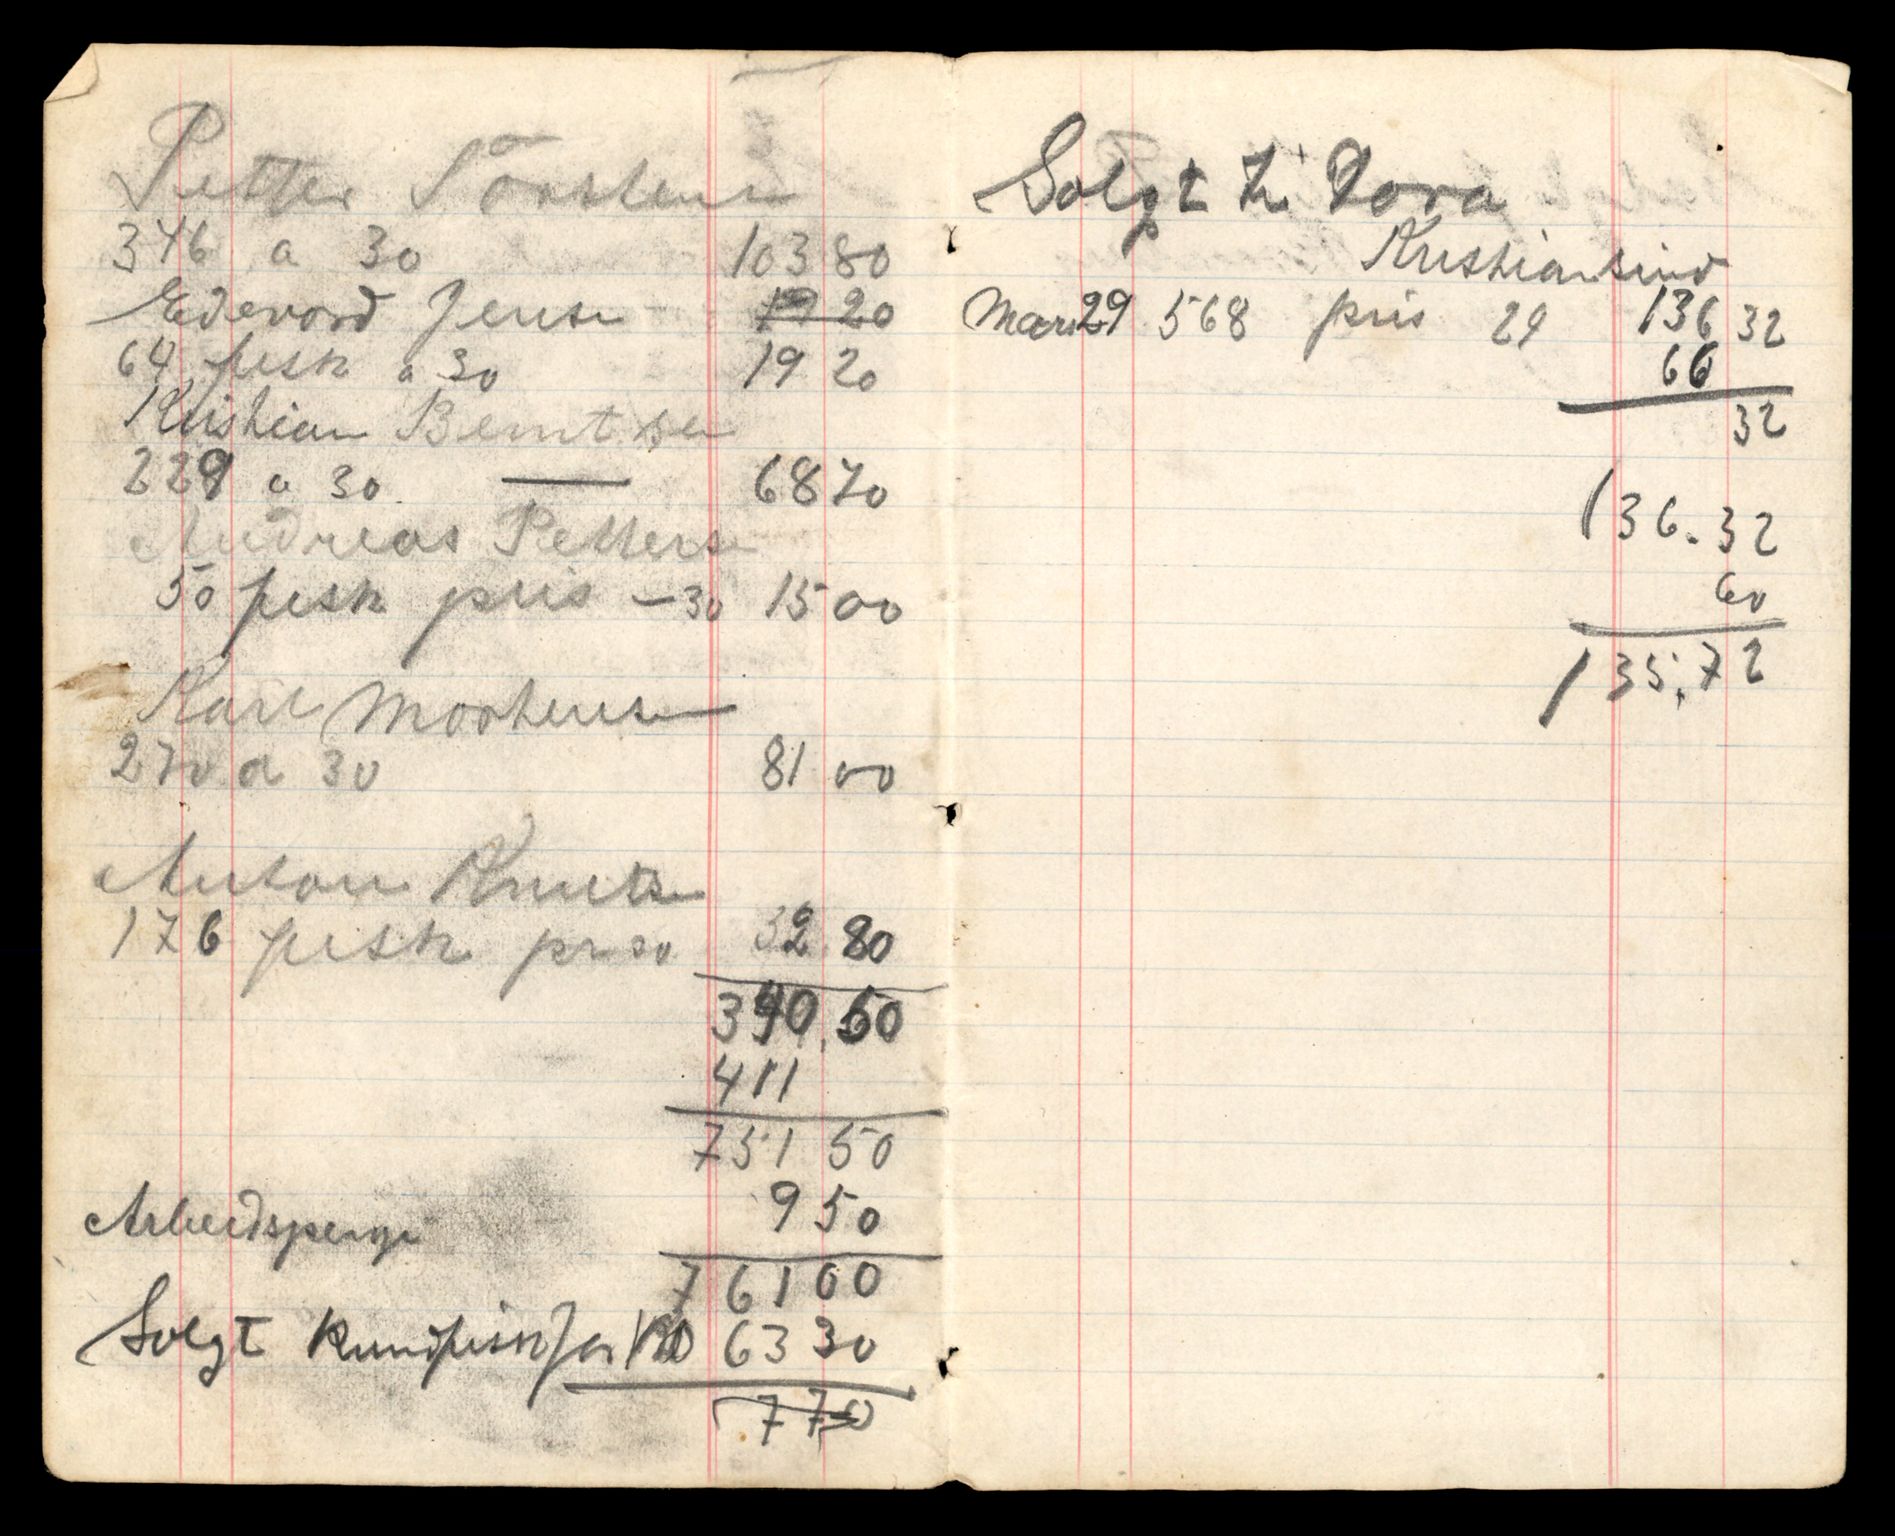 Petter Torstensen
346 a 30 103 80
Edevard Jensen 19 20
64 fisk a 30 19 20
Kristian Berntsen
229 a 30 — 68 70
Andreas Petters
50 fisk pris - 30 15 00
Karl Morthensen
270 a 30 81 00
Anton Knutsen
176 fisk pr 30 32 80
340.50
411
751 50
Arbeidspenge 9 50
761 00
Solgt Rundfisk 63 30
770
Solgt ti Dora
Kristiansund
Mars 29 568 pris 24 136 32
60
32
136.32
60
135,72